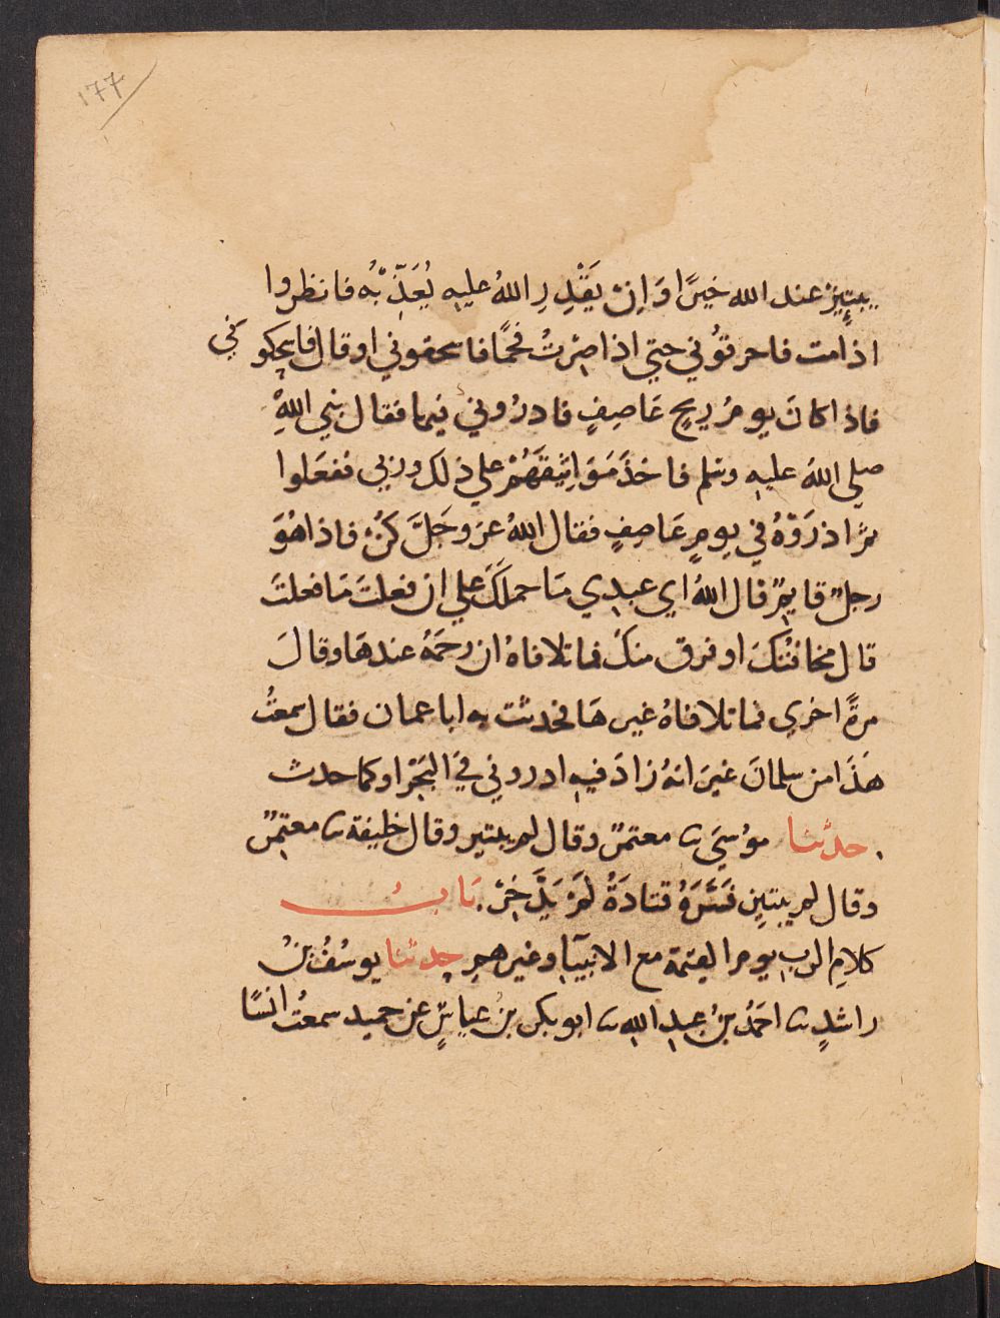 ١٧٧
يبتئز عند الله خيرًا وَاِنْ يَقْدِرِ اللهُ عليه يُعَذِّبْهُ فانظروا
اذا مت فاحرقُوني حتي اذا صِرْتُ فحمًا فاسحقوني او قال فاسحكوني
فاذا كانَ يومُ رِيحٍ عَاصِفٍ فاذرُوني فيها فقال نبي اللهِ
صلي اللهُ عليه وسلم فاخذَ مَوَاثِيقَهُمْ علي ذلك وربي ففعَلوا
ثم اذرَوْهُ في يومٍ عَاصِفٍ فقال اللهُ عز وجَلَّ كُنْ فاذا هُوَ
رجلٌ قايمٌ قال اللهُ اي عبدِي مَا حملَكَ علي ان فعلتَ مَا فعلتَ
قال مخافتُكَ او فرق منكَ فما تلافاهُ ان رحمَهُ عندهَا وقالَ
مرةً اخري فما تلافاهُ غيرهَا فحدثت به ابا عمان فقال سمعتُ
هَذَا من سلمانَ غيرَ انهُ زادَ فيهِ اذروني فِي البَحْرِ او كما حدث
. حدثنا موُسَي ثنا معتمرٌ وقال لم يبتير وقال خليفة ثنا معتمِرٌ
وقال لم يبتيز فَسَّرَهُ قتادَةُ لَمْ يَدَّخِرْ. بَابُ
كلامِ الربِ يوم القيمة مع الانبيآءِ وغيرهم حدثنا يوسُفُ بْنُ
راشدٍ ثنا احمَدُ بنُ عبدِ اللهِ ثنا ابو بكر بنُ عياشٍ عن حميد سمعتُ انسًا